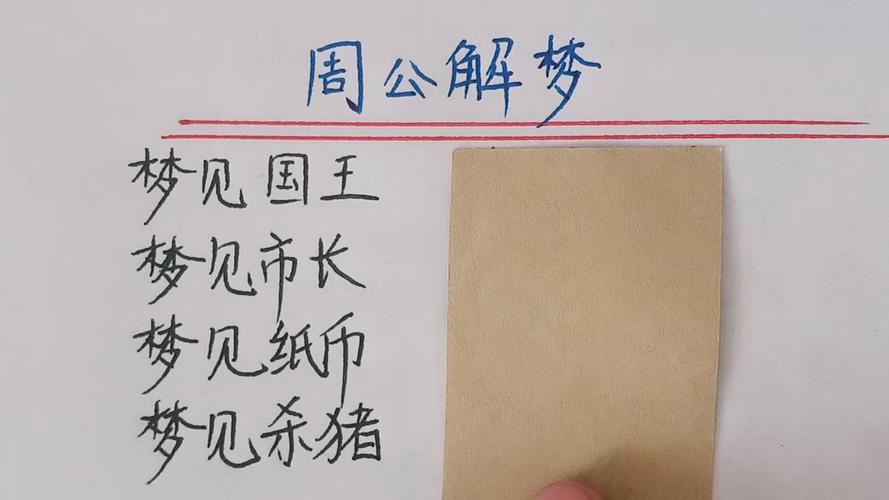 周公解梦
梦见国王
梦见市长
梦见纸币
梦见杀猪